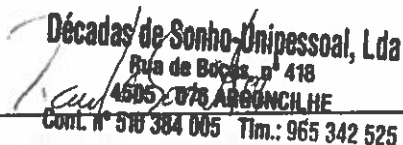 Décadas de Sonho-Unipessoal, Lda
Rua de Boças, nº 418
4505 - 076 ARGONCILHE
Cont. nº 510 384 005 Tlm.: 965 342 525